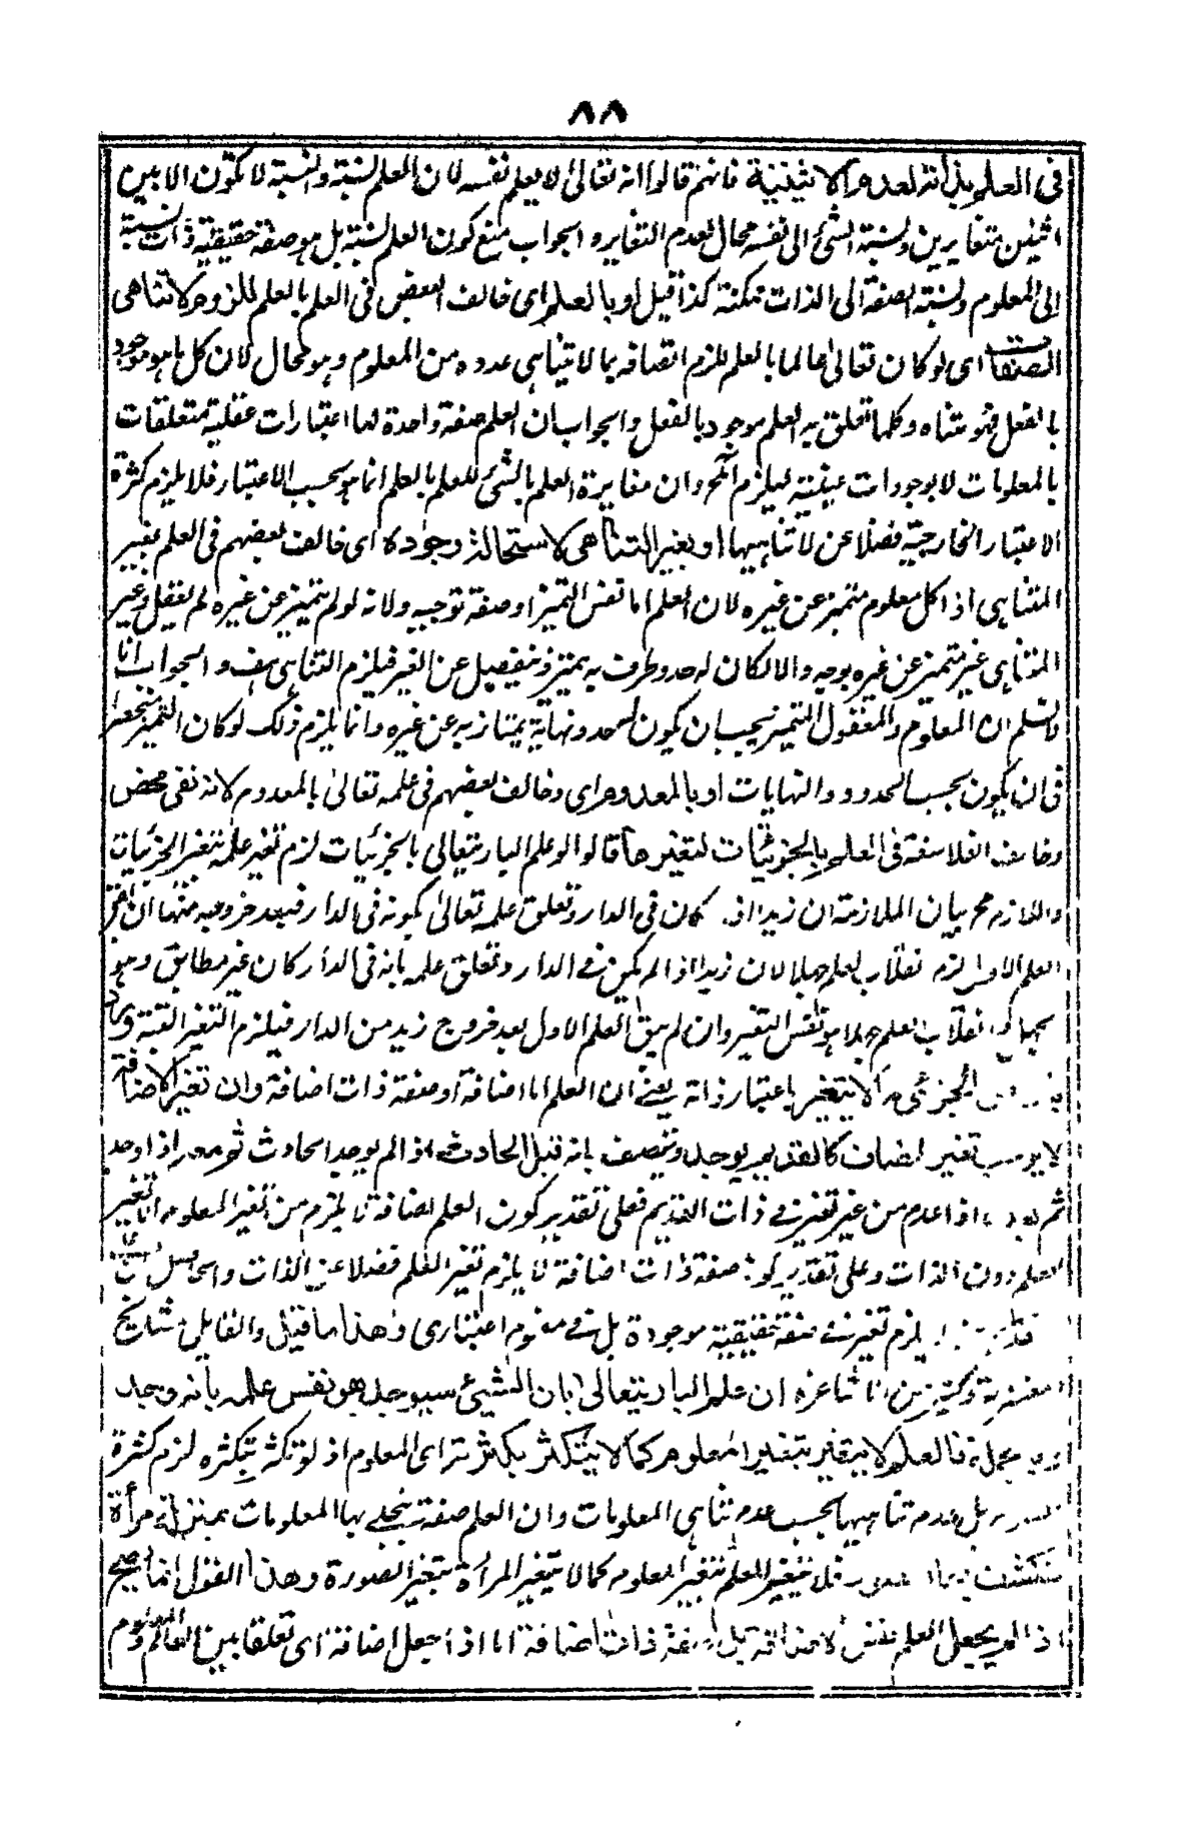 ٨٨
في العلم بذاته لعدم الاثنينية فانهم قالوا انه تعالى لا يعلم نفسه لان العلم نسبة والنسبة لا تكون الا بين
اثنين متغايرين ونسبة الشئ الى نفسه محال لعدم التغاير والجواب منع كون العلم نسبة بل هو صفة حقيقية ذات نسبة
الى المعلوم ونسبة الصفة الى الذات ممكنة كذا قيل او بالعلم اى خالف البعض في العلم بالعلم للزوم لا تناهى
الصفات اى لو كان تعالى عالما بالعلم للزم اتصافه بما لا يتناهى عدده من المعلوم وهو محال لان كل ما هو موجود
بالفعل فهو متناه وكلما تعلق به العلم موجود بالفعل والجواب ان العلم صفة واحدة لها اعتبارات عقلية متعلقات
بالمعلومات لا بوجودات عينية ليلزم المح وان مغايرة العلم بالشئ للعلم بالعلم انما هو بحسب الاعتبار فلا يلزم كثرة
الاعتبار الخارجية فضلا عن لا تناهيها او بغير المتناهى لاستحالة وجوده اى خالف بعضهم في العلم بغير
المتناهى اذ كل معلوم متميز عن غيره لان العلم اما نفس التميز او صفة توجبه ولانه لو لم يتميز عن غيره لم يعقل وغير
المتناهى غير متميز عن غيره بوجه والا لكان له حد وطرف به يتميز وينفصل عن الغير فيلزم التناهى هف والجواب انا
لا نسلم ان المعلوم والمعقول المتميز يجب ان يكون له حد ونهاية يمتاز به عن غيره وانما يلزم ذلك لو كان التميز منحصرا
في ان يكون بحسب الحدود والنهايات او بالمعدوم اى وخالف بعضهم في علمه تعالى بالمعدوم لانه نفى محض
وخالف الفلاسفة في العلم بالجزئيات لتغيرها قالوا لو علم البارى تعالى بالجزئيات لزم تغير علمه بتغير الجزئيات
واللازم مح بيان الملازمة ان زيدا اذا كان في الدار وتعلق علمه تعالى بكونه في الدار فبعد خروجه منها ان بقى
العلم الاول لزم انقلاب العلم جهلا لان زيدا اذا لم يكن في الدار وتعلق علمه بانه في الدار كان غير مطابق وهو
انقلاب العلم جهلا هو نفس التغير وان لم يبق العلم الاول بعد خروج زيد من الدار فيلزم التغير البتة
الجزئى لا يتغير باعتبار ذاته يعنى ان العلم اما اضافة او صفة ذات اضافة وان تغير الاضافة
لا يوجب تغير المضاف كالقديم يوجد ويتصف بانه قبل الحادث اذا لم يوجد الحادث ثم معه اذا وجد
ثم بعده اذا عدم من غير تغير في ذات القديم فعلى تقدير كون العلم اضافة لا يلزم من تغير المعلوم الا تغير
العلم دون الذات وعلى تقدير كونه صفة ذات اضافة لا يلزم تغير العلم فضلا عن الذات والحاصل
يلزم تغير في صفة حقيقية موجودة بل في مفهوم اعتبارى وهذا ما قيل والقايل مشايخ
المعتزلة وكثير من الاشاعرة ان علم البارى تعالى بان الشئ سيوجد هو نفس علمه بانه وجد
فالعلم لا يتغير بتغير المعلوم كما لا يتكثر بكثرته اى المعلوم اذ لو تكثر بتكثره لزم كثرة
بل عدم تناهيها بحسب عدم تناهى المعلومات وان العلم صفة يتجلى بها المعلومات بمنزلة مرأة
تنكشف بها الصور فلا يتغير العلم بتغير المعلوم كما لا يتغير المرأة بتغير الصورة وهذا القول انما يصح
اذا لم يجعل العلم نفس الاضافة بل صفة ذات اضافة اما اذا جعل اضافة اى تعلقا بين العالم والمعلوم